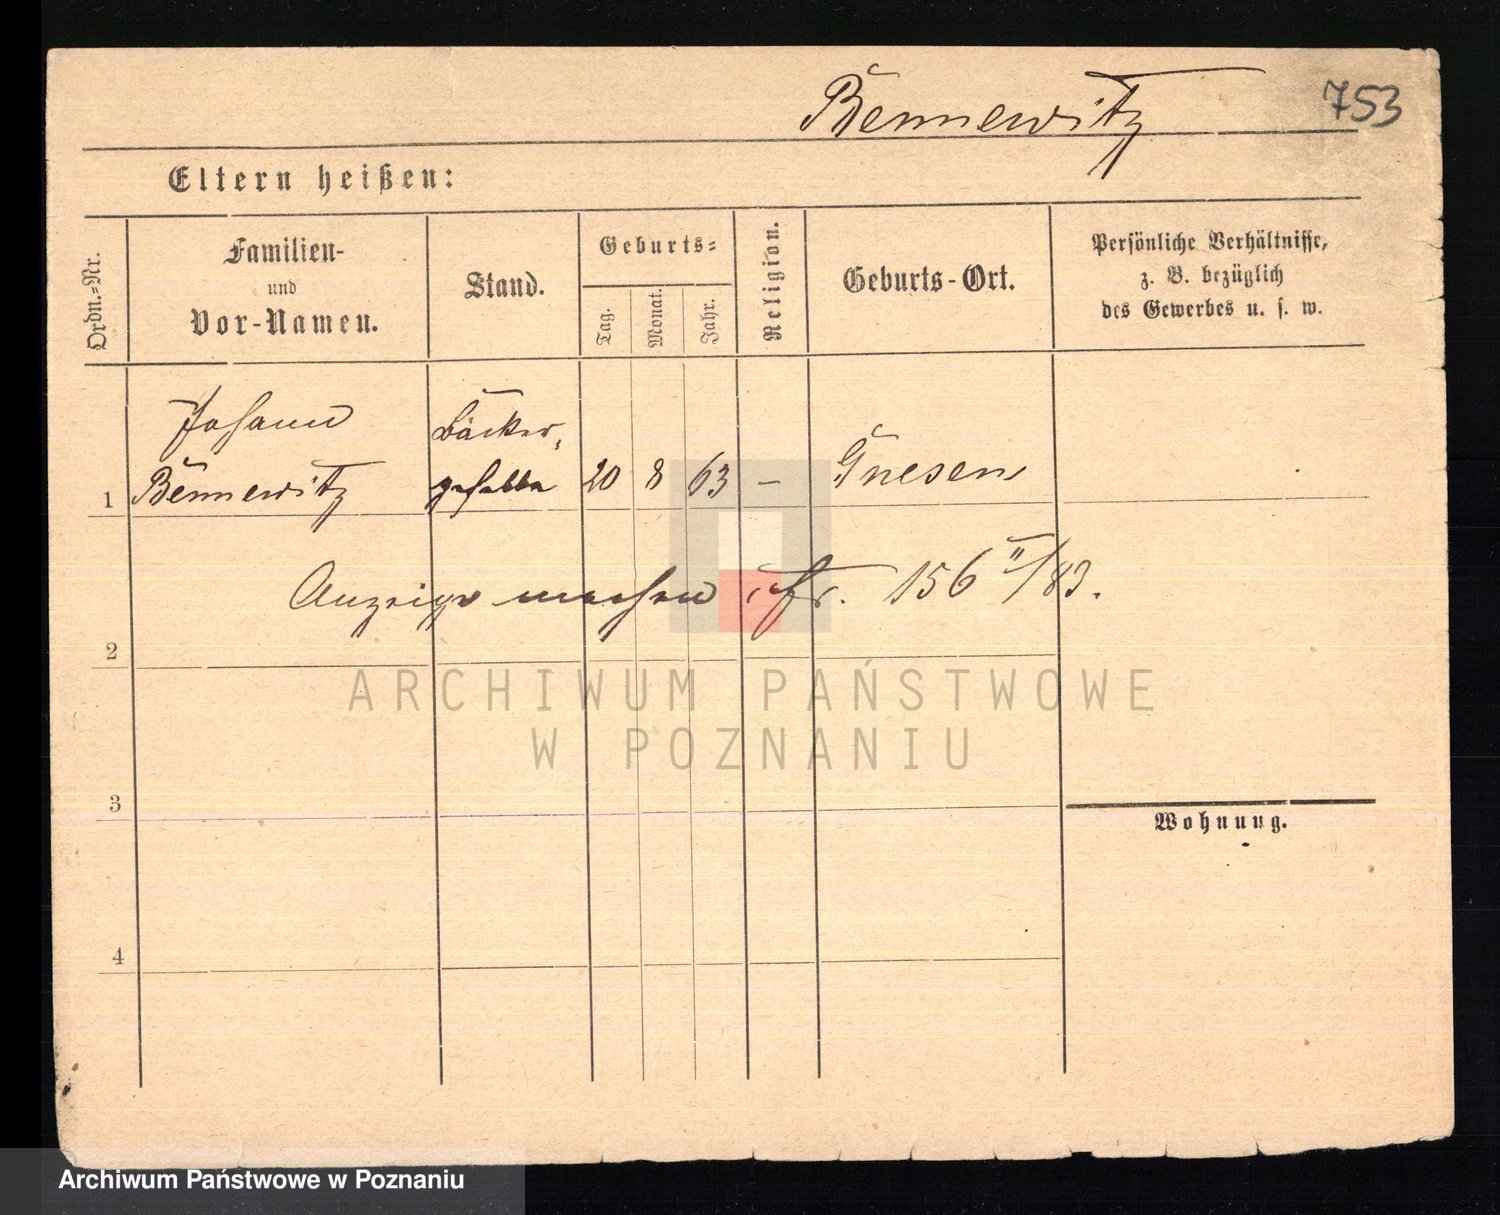 Bennewitz
753
Eltern heißen:
Ordn.-Nr.
Familien-
und
Vor-Namen.
Stand.
Geburts-
Tag.
Monat.
Jahr.
Religion.
Geburts-Ort.
Persönliche Verhältnisse,
z. B. bezüglich
des Gewerbes u. s. w.
Johann
Bennewitz
Bäcker-
geselle
1
20
8
63
—
Gnesen
Anzeige machen cfr. 156 II/83.
2
ARCHIWUM PAŃSTWOWE
W POZNANIU
3
Wohnung.
4
Archiwum Państwowe w Poznaniu